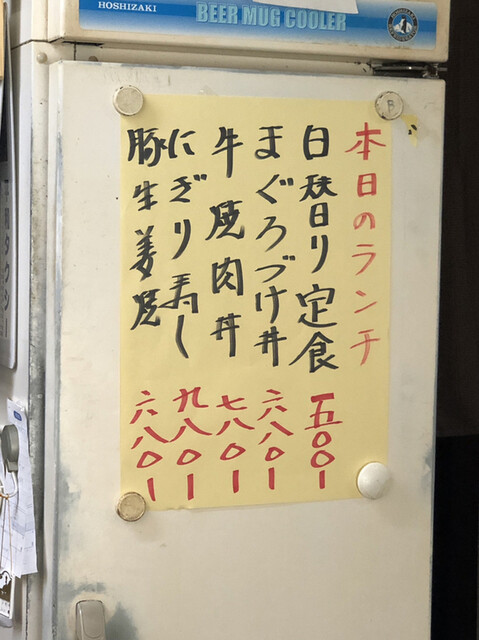 HOSHIZAKI
BEER MUG COOLER
本日のランチ
日替り定食 五〇〇ー
まぐろづけ丼 六八〇ー
牛焼肉丼 七八〇ー
にぎり寿し 九八〇ー
豚生姜焼 六八〇ー